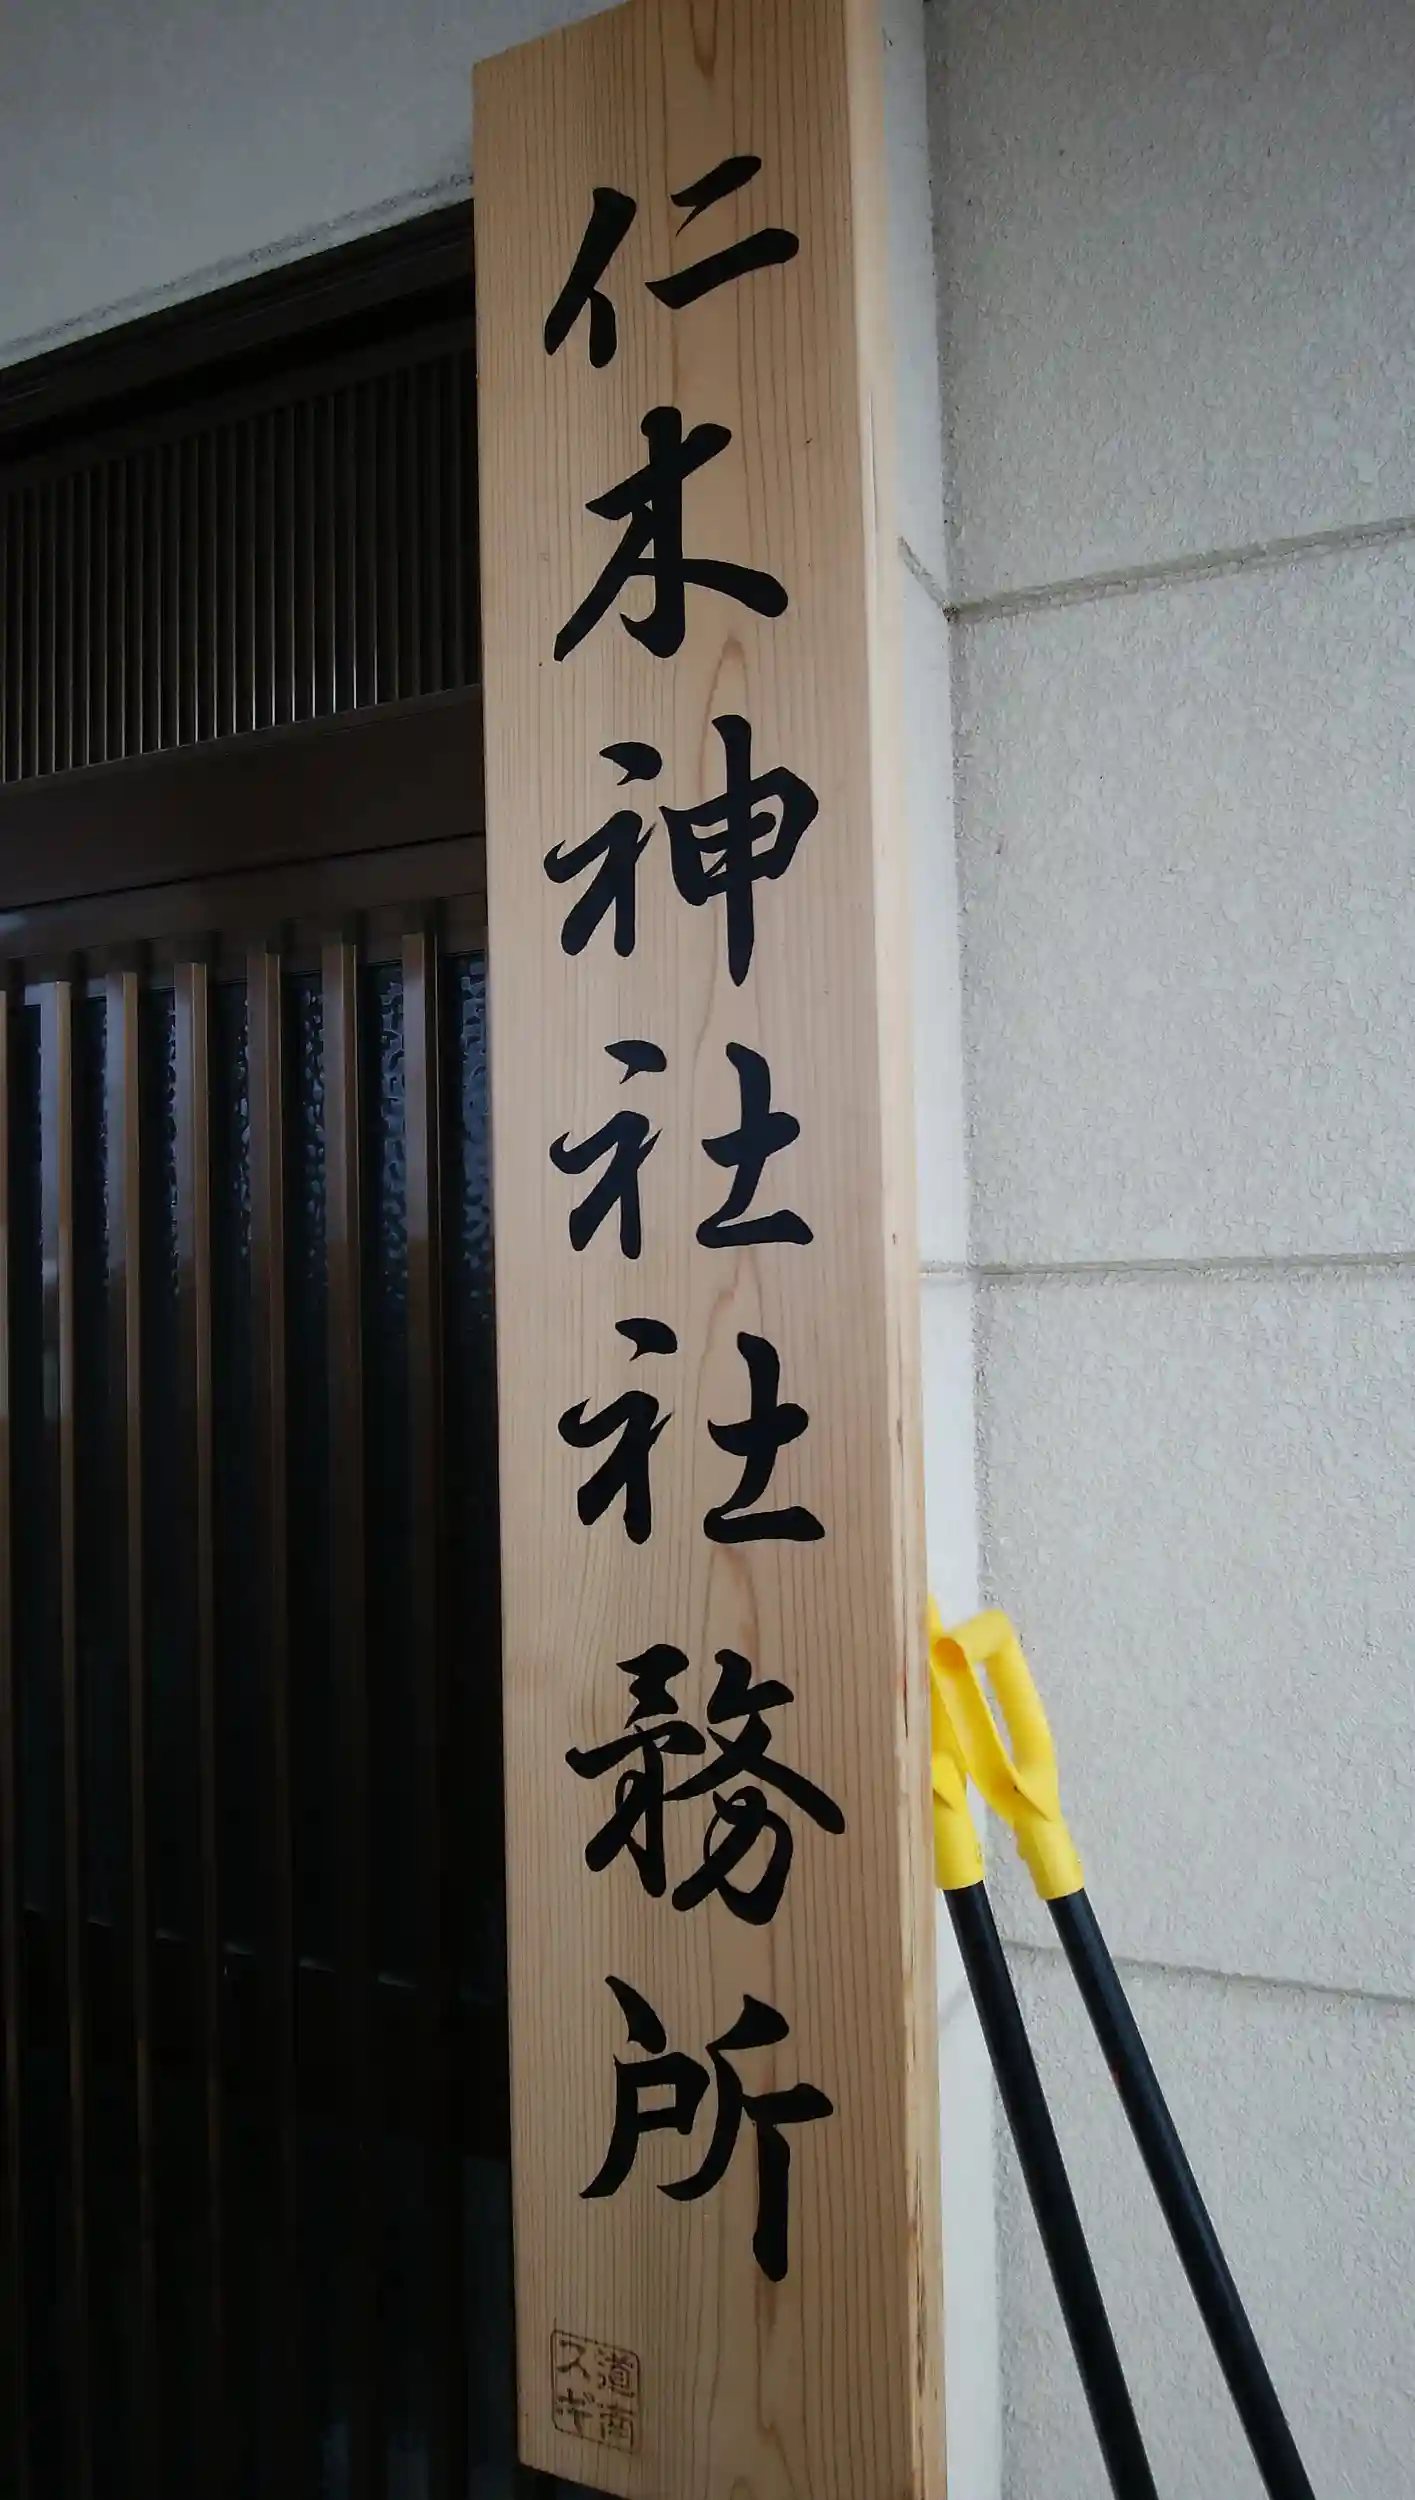 仁木神社社務所
道南
スギ